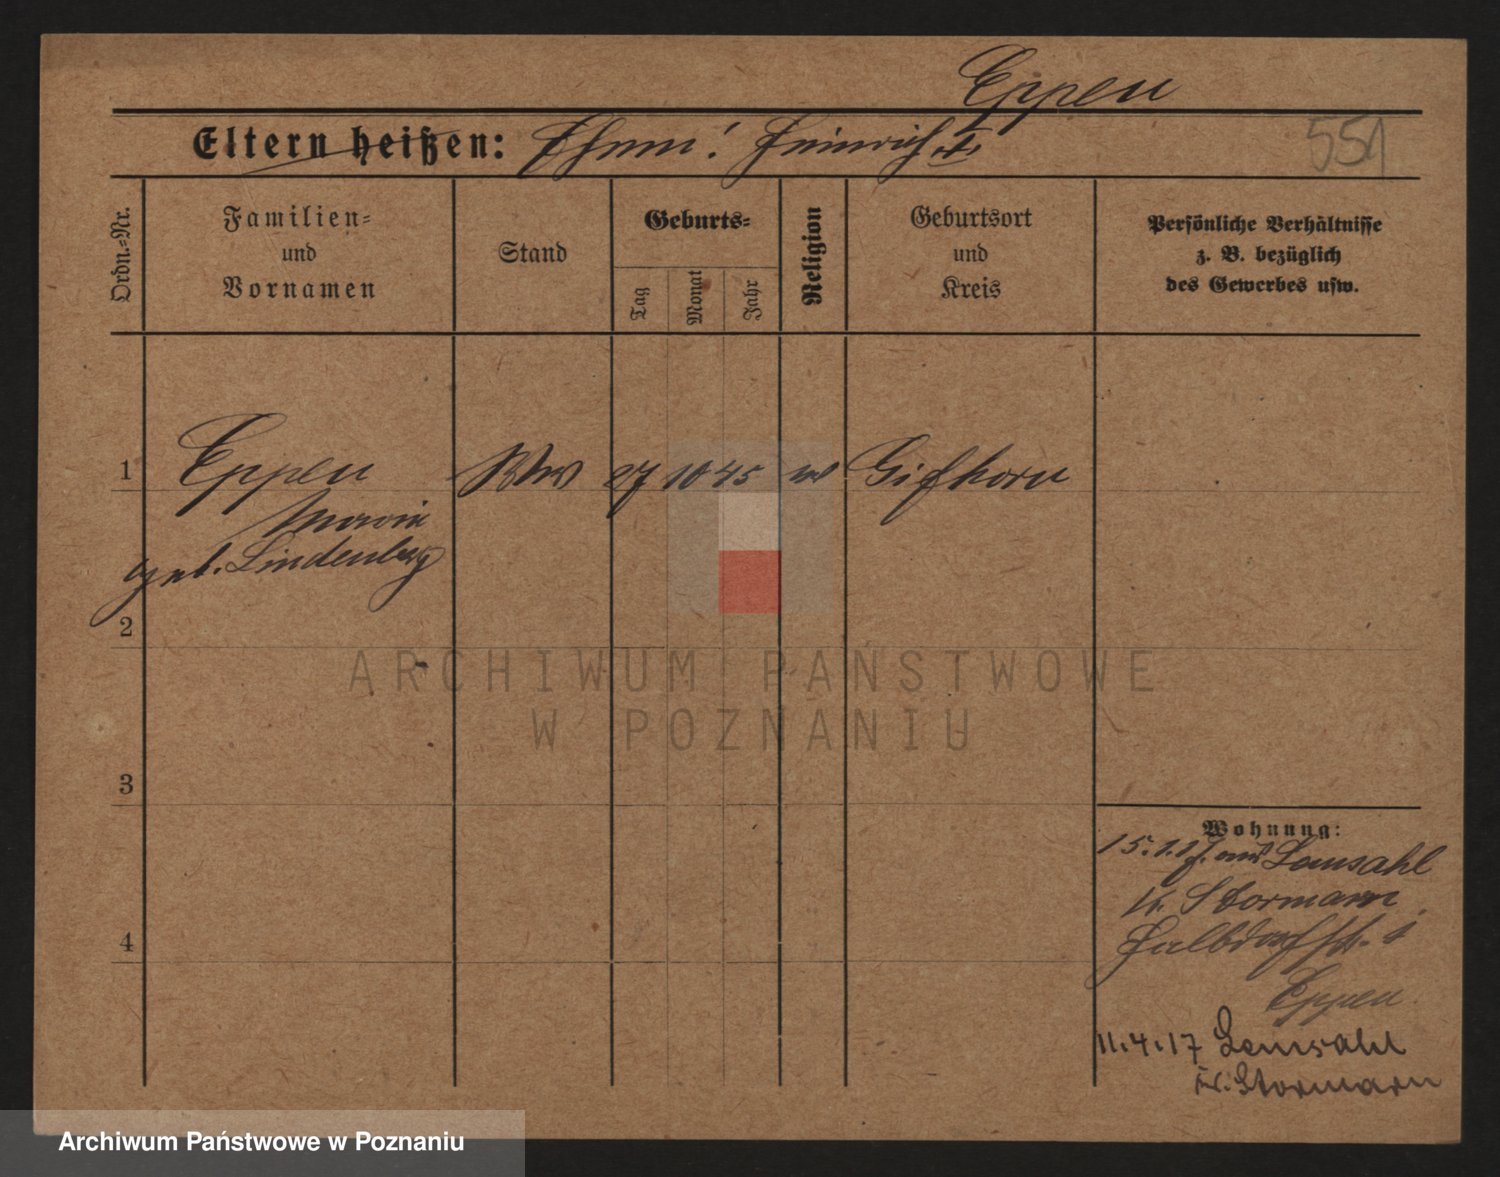 Eppen
Eltern heißen: Ehem: Heinrich †
551
Ordn.-Nr.
Familien-
und
Vornamen
Stand
Geburts-
Tag
Monat
Jahr
Religion
Geburtsort
und
Kreis
Persönliche Verhältnisse
z. B. bezüglich
des Gewerbes usw.
1 Eppen Wwe 27 10 45 Gifhorn
Marie
geb. Lindenberg
2
ARCHIWUM PAŃSTWOWE
W POZNANIU
3
Wohnung:
15.1.17. aus Lemsahl
K. Stormarn
4
Eppen
11.4.17 Lemsahl
K. Stormarn
Archiwum Państwowe w Poznaniu